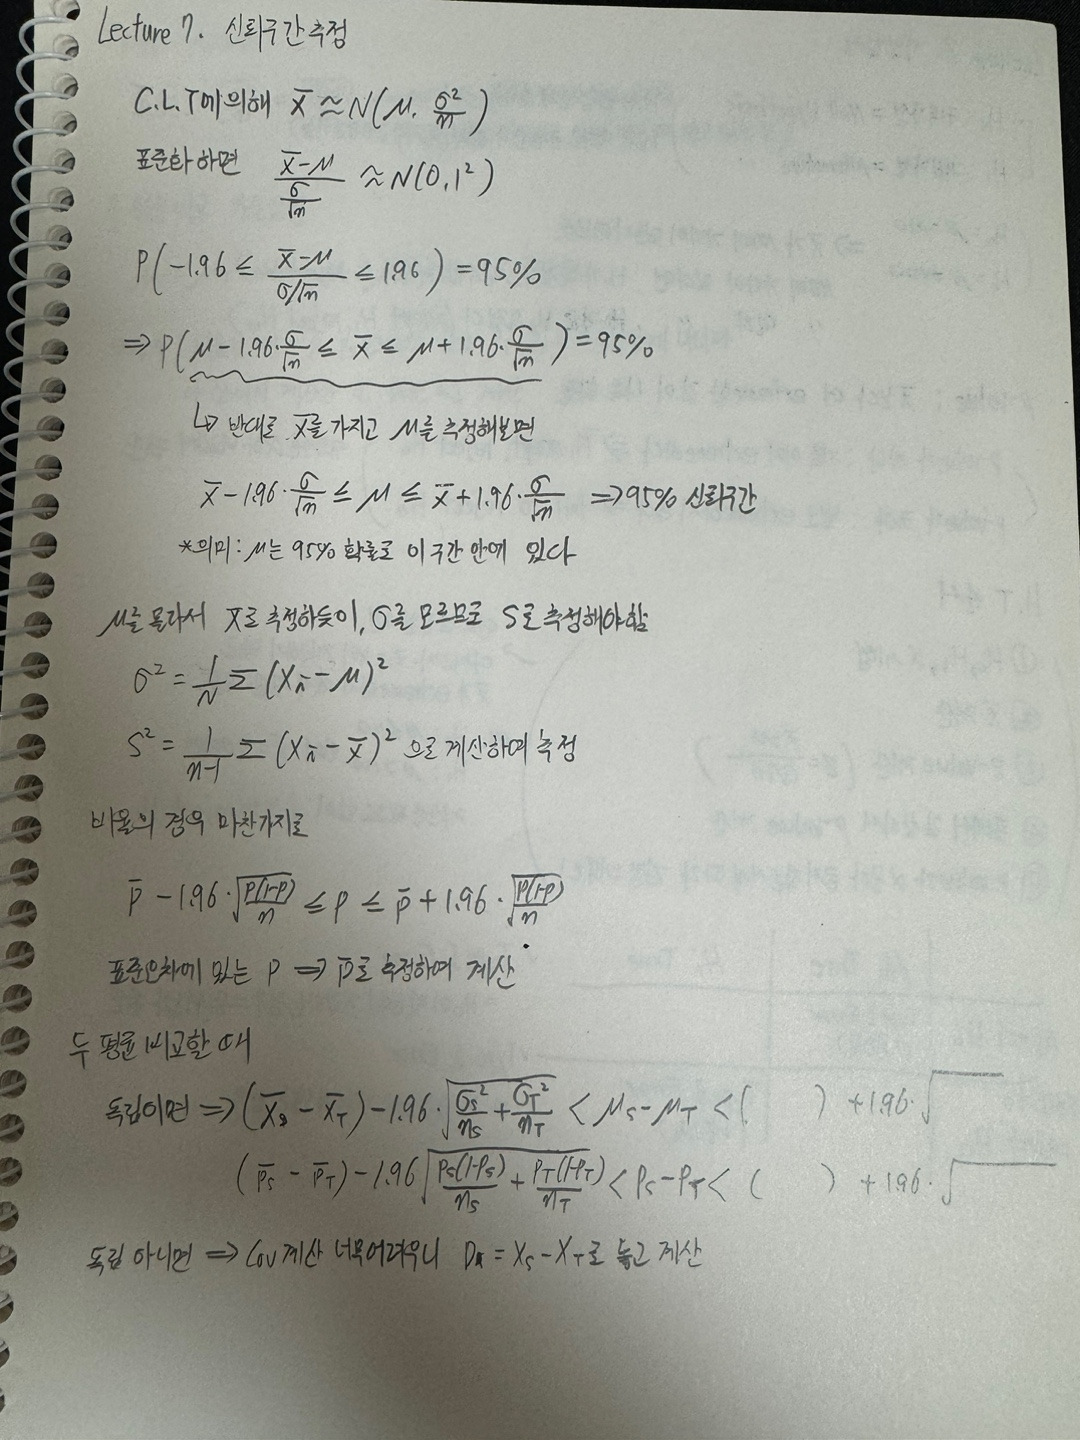 Lecture 7. 신뢰구간 추정
C.L.T에 의해 X̄ ≈ N(μ, σ²/n)
표준화 하면 (X̄-μ)/(σ/√n) ≈ N(0, 1²)
P(-1.96 ≤ (X̄-μ)/(σ/√n) ≤ 1.96) = 95%
⇒ P(μ - 1.96·σ/√n ≤ X̄ ≤ μ + 1.96·σ/√n) = 95%
↳ 반대로 X̄를 가지고 μ를 추정해보면
X̄ - 1.96·σ/√n ≤ μ ≤ X̄ + 1.96·σ/√n ⇒ 95% 신뢰구간
*의미: μ는 95% 확률로 이 구간 안에 있다
μ를 몰라서 X̄로 추정하듯이, σ를 모르므로 S로 추정해야함
σ² = 1/N Σ (Xi - μ)²
S² = 1/(n-1) Σ (Xi - X̄)² 으로 계산하여 추정
비율의 경우 마찬가지로
p̄ - 1.96·√(p(1-p)/n) ≤ p ≤ p̄ + 1.96·√(p(1-p)/n)
표준오차에 있는 p ⇒ p̄로 추정하여 계산
두 평균 비교할 때
독립이면 ⇒ (X̄s - X̄T) - 1.96·√(σs²/ns + σT²/nT) < μs - μT < ( ) + 1.96·√
(p̄s - p̄T) - 1.96√(ps(1-ps)/ns + pT(1-pT)/nT) < ps - pT < ( ) + 1.96·√
독립 아니면 ⇒ Cov 계산 너무 어려우니 D = Xs - XT로 놓고 계산